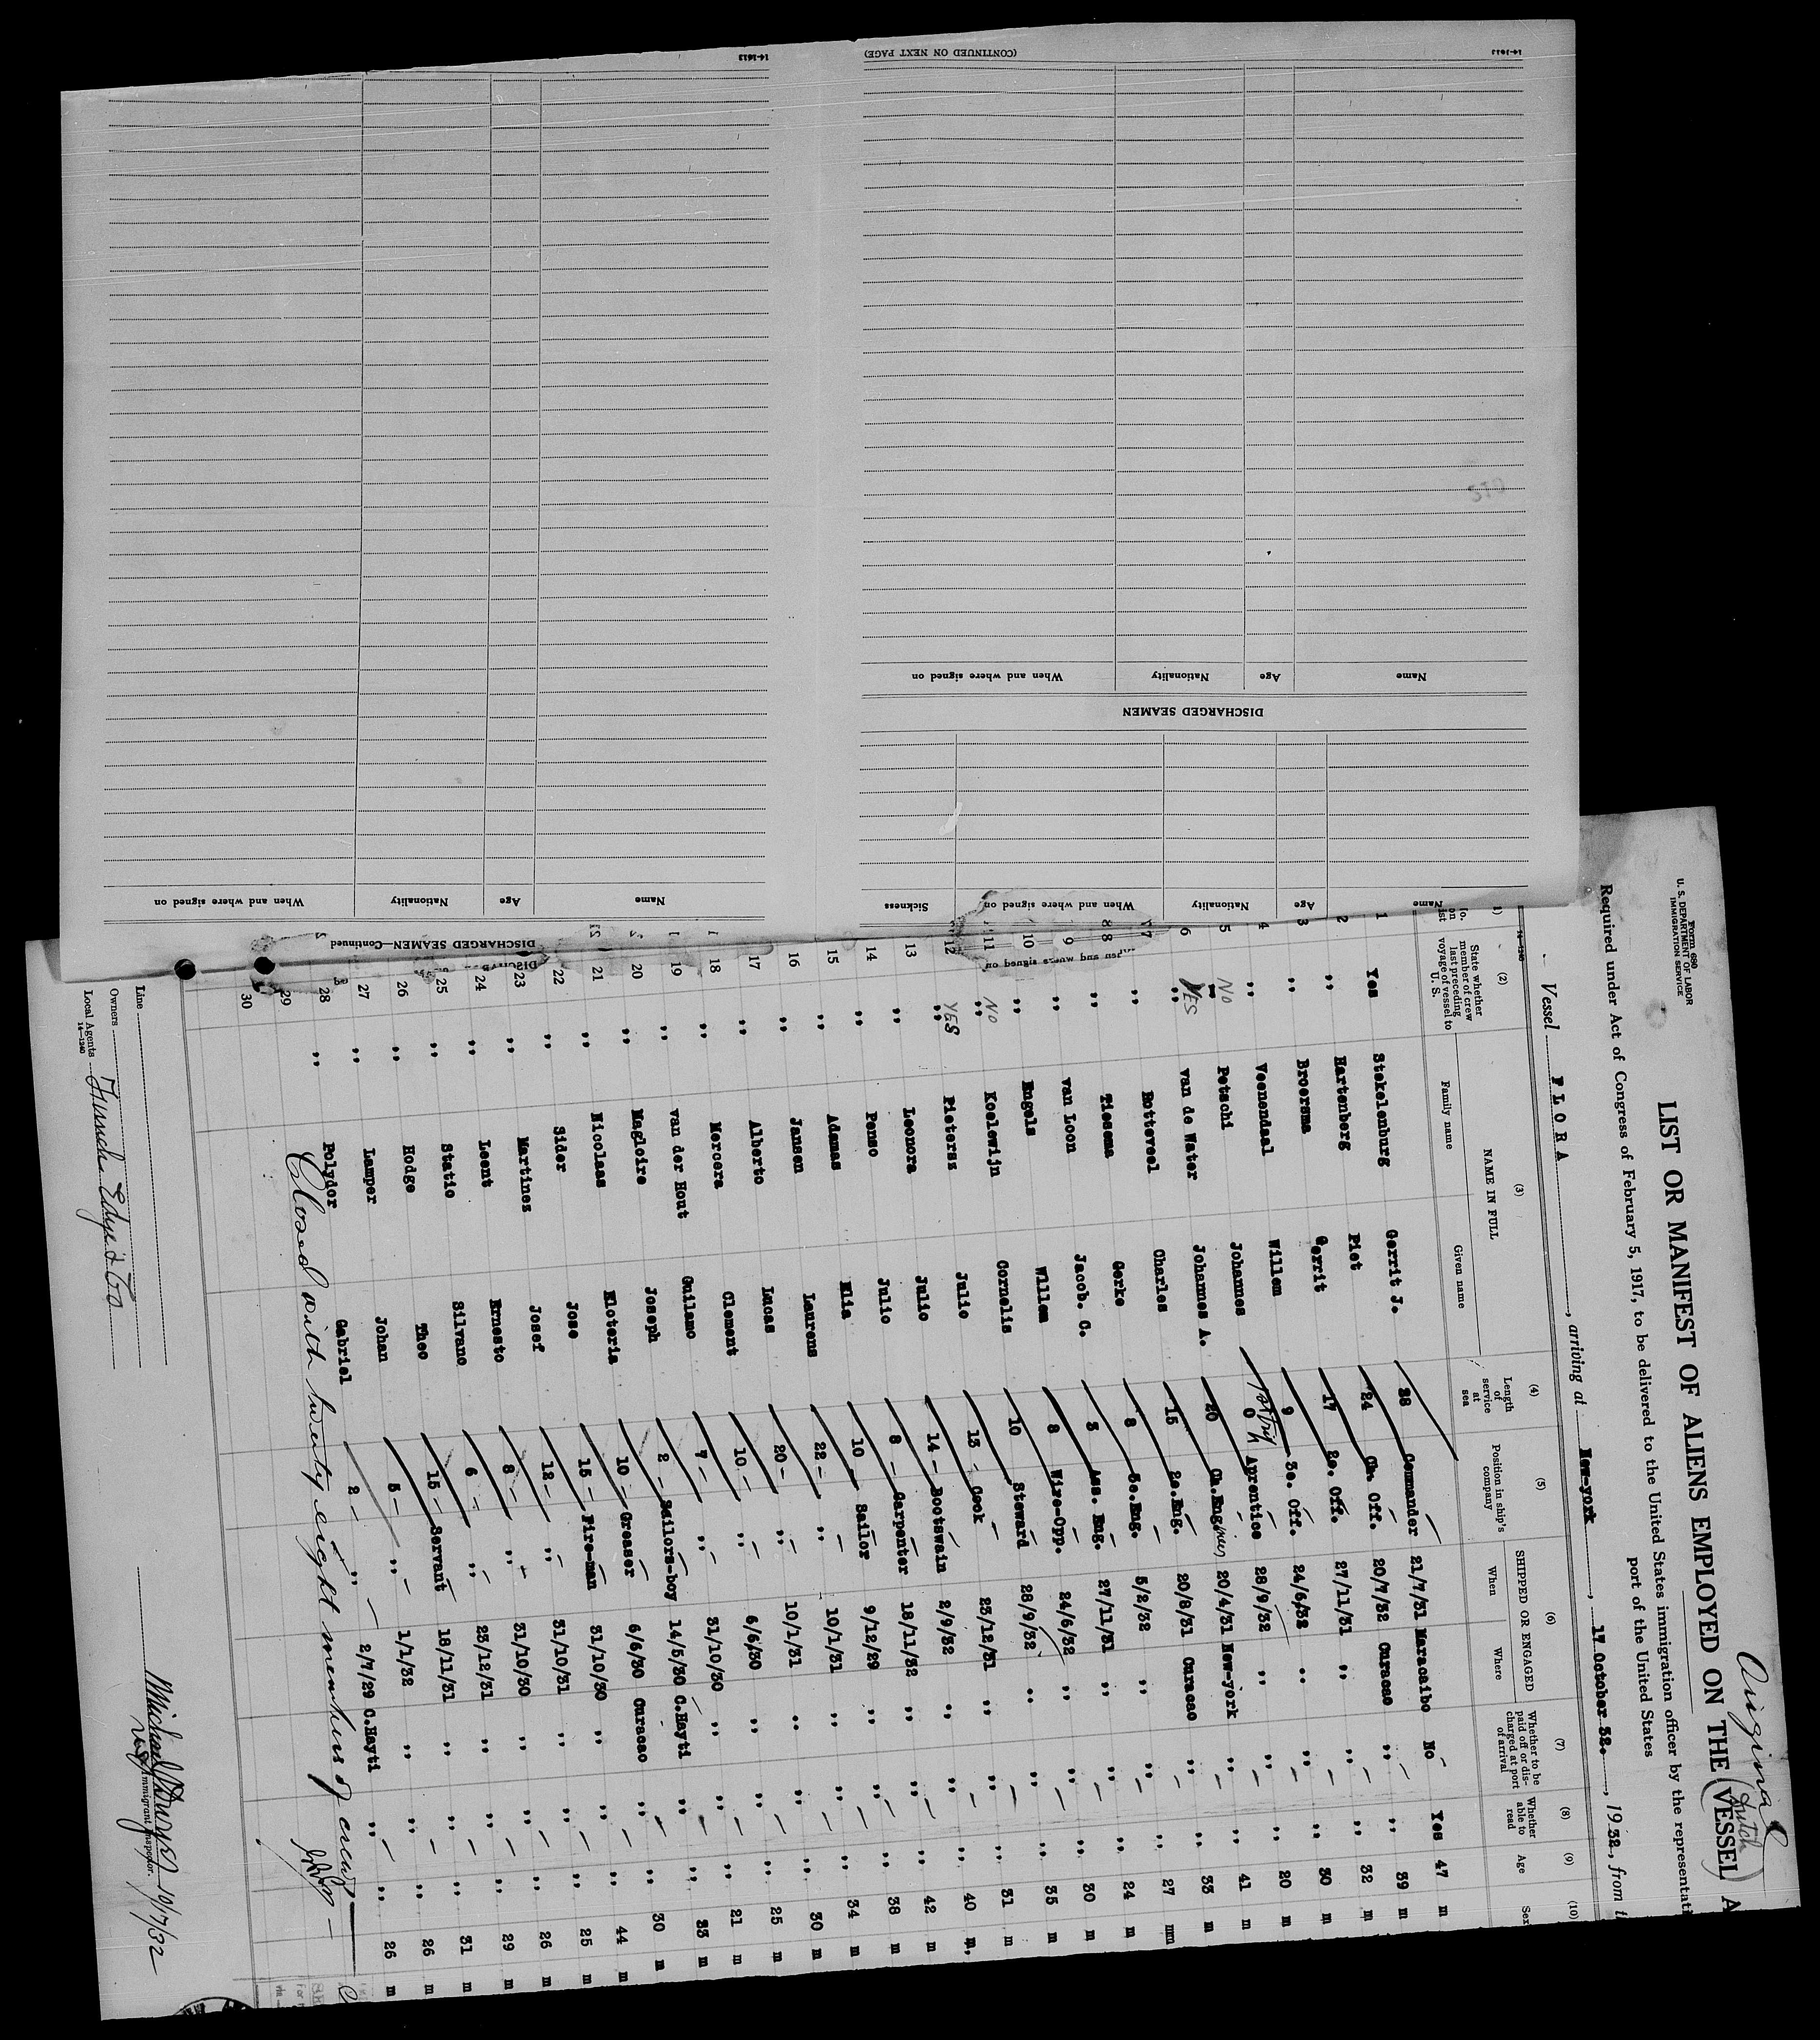 Original
Form 680
U. S. DEPARTMENT OF LABOR
IMMIGRATION SERVICE
LIST OR MANIFEST OF ALIENS EMPLOYED ON THE (VESSEL) A
Dutch
Required under Act of Congress of February 5, 1917, to be delivered to the United States immigration officer by the representati
port of the United States
Vessel FLORA, arriving at New-york, 17 October 32., 1932, from t
(2) (3) (4) (5) (6) (7) (8) (9) (10)
State whether member of crew last preceding voyage of vessel to U. S.
NAME IN FULL
Family name Given name
Length of service at sea
Position in ship's company
SHIPPED OR ENGAGED
When Where
Whether to be paid off or discharged at port of arrival
Whether able to read
Age
Sex
1 Yes Stekelenburg Gerrit J. 38 Commander 21/7/31 Maracaibo No Yes 47 m
2 ,, Hartenberg Piet 24 Ch. Off. 20/7/32 Curacao ,, ,, 39 m
3 ,, Broersma Gerrit 17 2e. Off. 27/11/31 ,, ,, ,, 32 m
4 ,, Veenendaal Willem 9 3e. Off. 24/6/32 ,, ,, ,, 30 m
5 NO Petschi Johannes 1st trip 0 Aprentice 28/9/32 ,, ,, ,, 20 m
6 YES van de Water Johannes A. 20 Ch.Eng. 20/4/31 New-york ,, ,, 41 m
7 ,, Botteveel Charles 15 2e.Eng. 20/8/31 Curacao ,, ,, 33 m
8 ,, Tiesema Gerke 8 3e.Eng. 5/2/32 ,, ,, ,, 27 mm
9 ,, van Loon Jacob. C. 3 Ass. Eng. 27/11/31 ,, ,, ,, 24 m
10 ,, Engels Willem 8 Wire-Opp. 24/6/32 ,, ,, ,, 30 m
11 NO Koelewijn Cornelis 10 Steward 28/9/32 ,, ,, ,, 35 m
12 YES Pietersz Julio 13 Cook 23/12/31 ,, ,, ,, 31 m
13 ,, Leonora Julio 14 Bootswain 2/9/32 ,, ,, ,, 40 m,
14 ,, Penso Julio 8 Carpenter 18/11/32 ,, ,, ,, 42 m
15 ,, Adamas Elia 10 Sailor 9/12/29 ,, ,, ,, 38 m
16 ,, Jansen Laurens 22 ,, 10/1/31 ,, ,, ,, 34 m
17 ,, Alberto Lucas 20 ,, 10/1/31 ,, ,, ,, 30 m
18 ,, Mercera Clement 10 ,, 6/6/30 ,, ,, ,, 25 m
19 ,, van der Hout Guilamo 7 ,, 31/10/30 ,, ,, ,, 21 m
20 ,, Magloire Joseph 2 Sailors-boy 14/5/30 C.Hayti ,, ,, 23 m
21 ,, Nicolaas Eloteria 10 Greaser 6/6/30 Curacao ,, ,, 30 m
22 ,, Sider Jose 15 Fire-man 31/10/30 ,, ,, ,, 44 m
23 ,, Martines Josef 12 ,, 31/10/31 ,, ,, ,, 25 m
24 ,, Leent Ernesto 8 ,, 31/10/30 ,, ,, ,, 26 m
25 ,, Statie Silvano 6 ,, 23/12/31 ,, ,, ,, 29 m
26 ,, Hodge Theo 15 Servant 18/11/31 ,, ,, ,, 31 m
27 ,, Lamper Johan 5 ,, 1/1/32 ,, ,, ,, 26 m
28 ,, Polydor Gabriel 2 ,, 2/7/29 C.Hayti ,, ,, 26 m
29
30
Closed with twenty eight members of crew
Line
Owners
Local Agents Funch Edye & Co
14—1240
Immigrant Inspector. 10/17/32
Name Age Nationality When and where signed on Sickness
DISCHARGED SEAMEN
Name Age Nationality When and where signed on
(CONTINUED ON NEXT PAGE)
14-1613
DISCHARGED SEAMEN—Continued
Name Age Nationality When and where signed on
14-1613